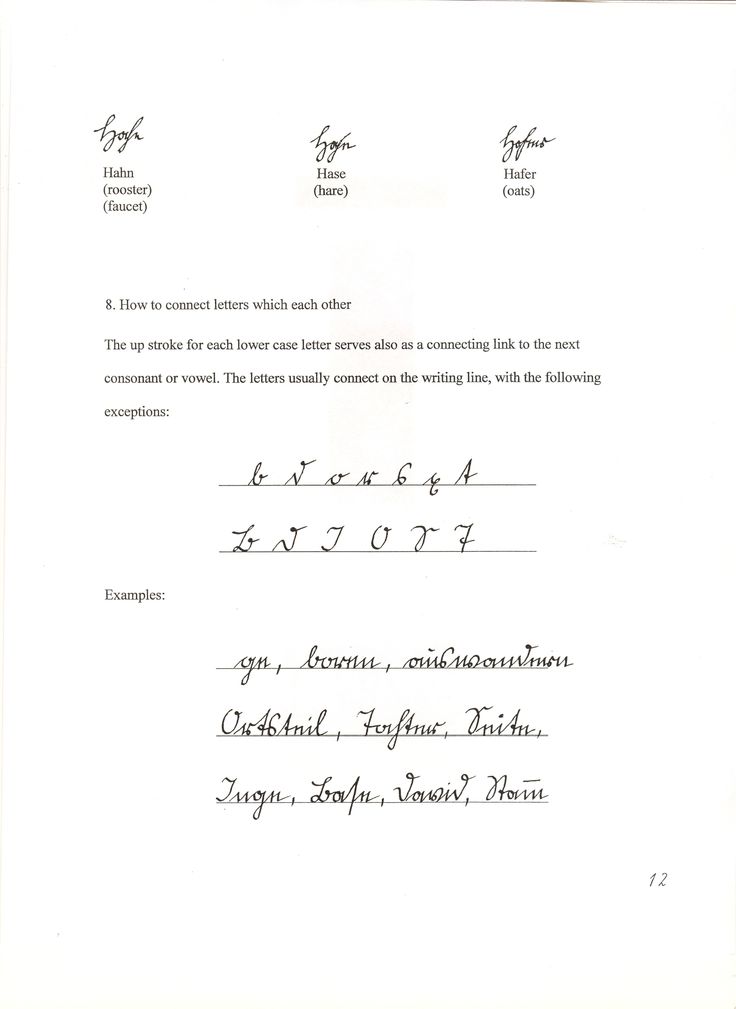 Hahn Hase Hafer
Hahn Hase Hafer
(rooster) (hare) (oats)
(faucet)
8. How to connect letters which each other
The up stroke for each lower case letter serves also as a connecting link to the next
consonant or vowel. The letters usually connect on the writing line, with the following
exceptions:
b d o r s x t
B D I O S T
Examples:
ge, boren, auswandern
Ortsteil, Tochter, Seite,
Inge, Base, David, Stam̄
12